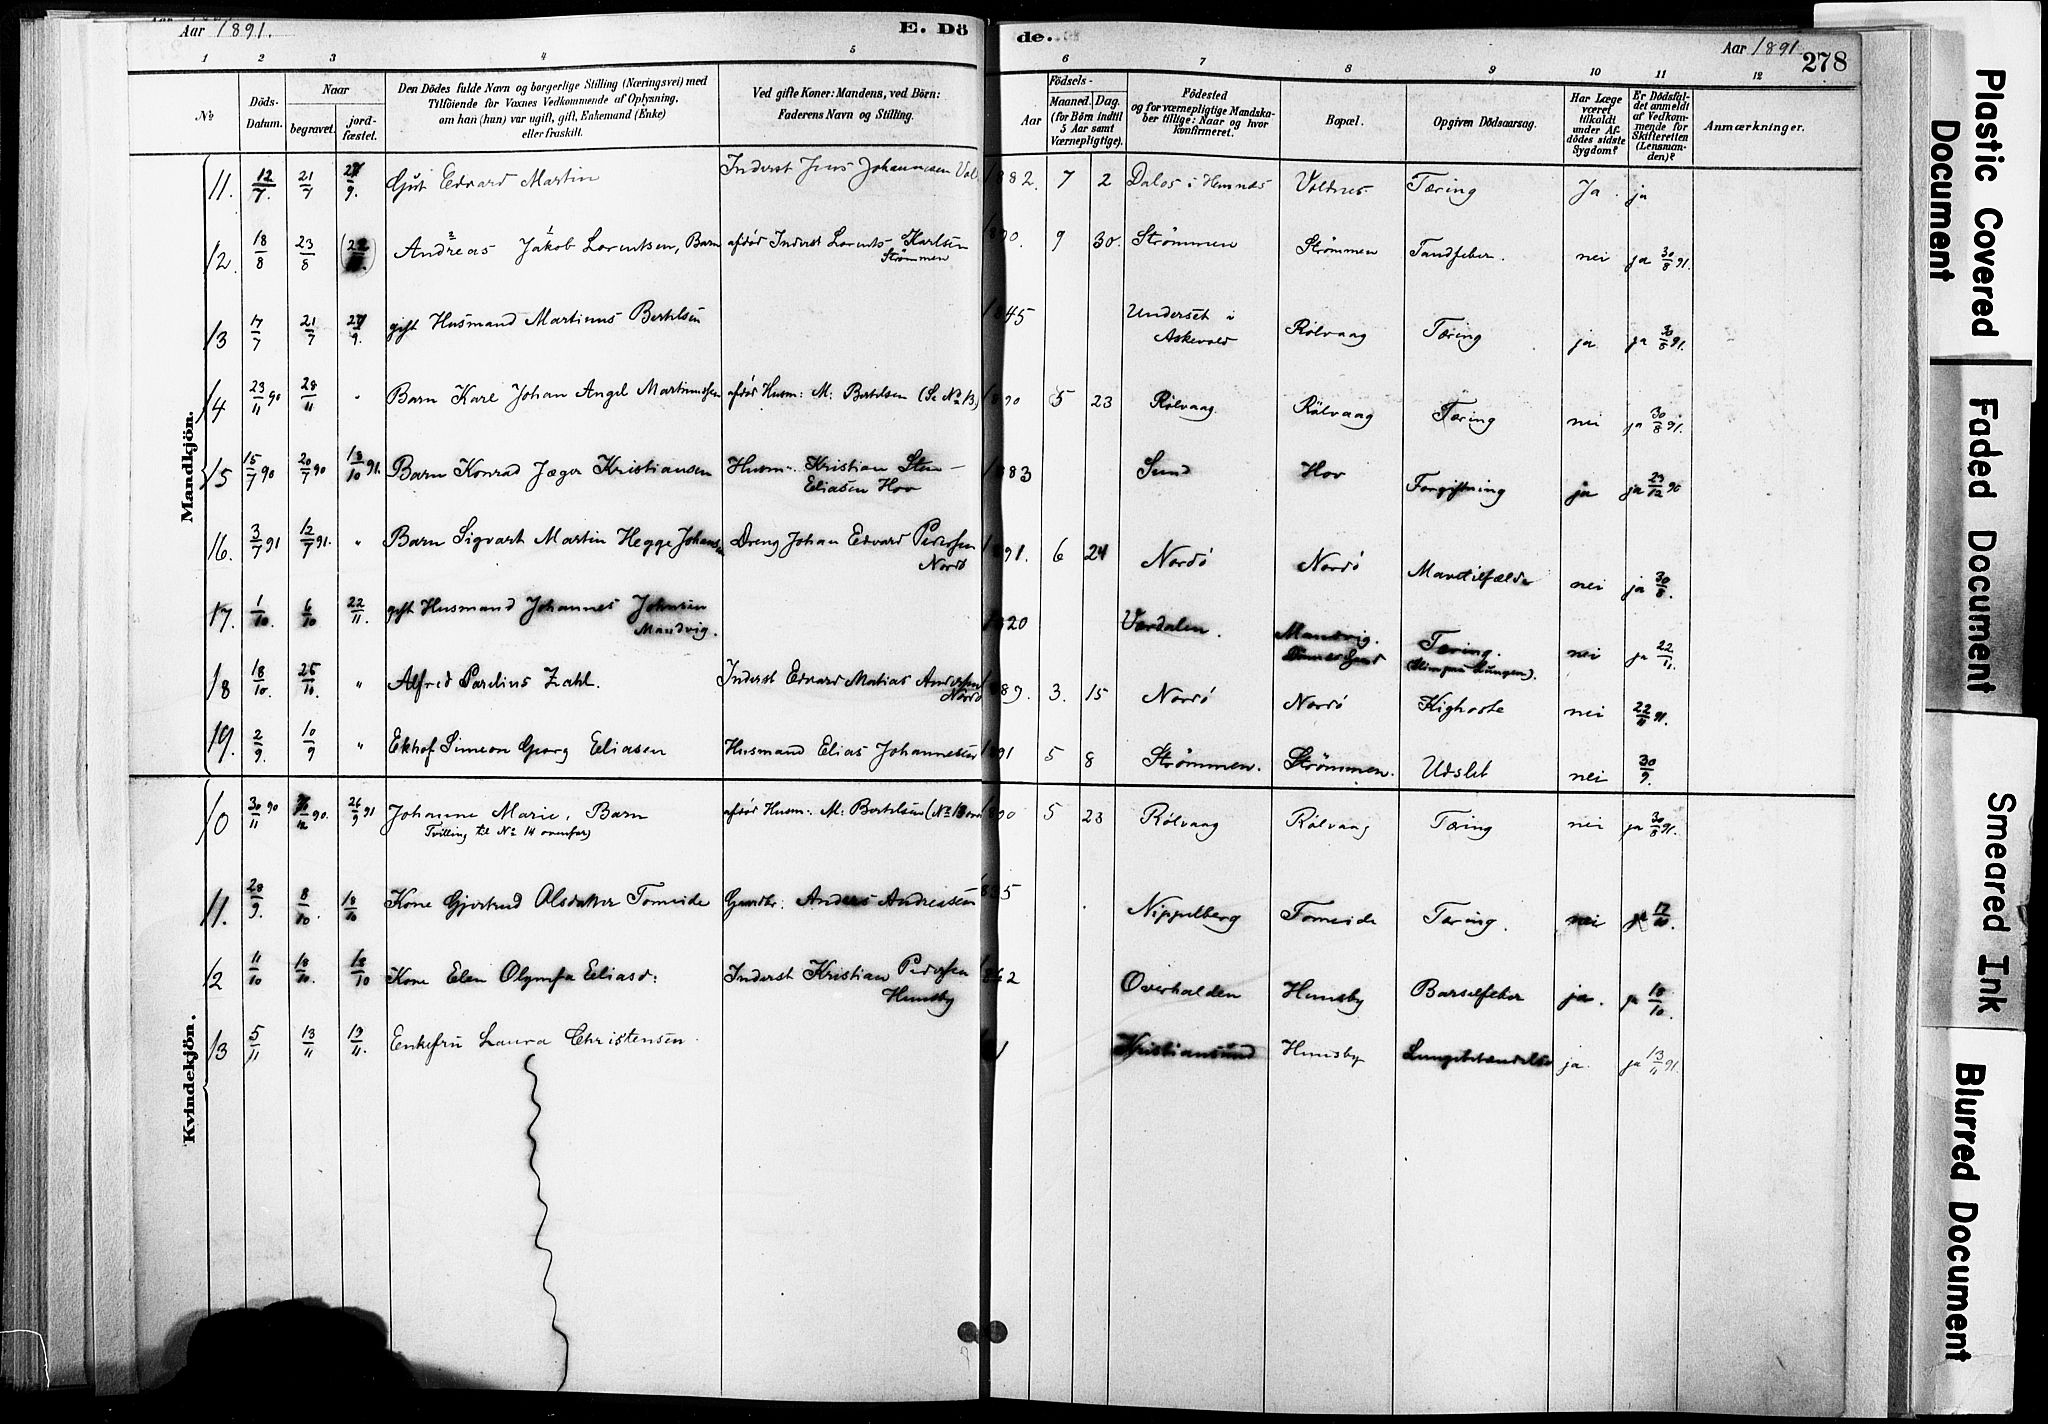 Aar 1891.
E. Dö
de.
Aar 1891
278
1 2 3 4 5 6 7 8 9 10 11 12
No
Döds-Datum.
Naar
begravet.
jord-fæstet.
Den Dödes fulde Navn og borgerlige Stilling (Næringsvei) med
Tilföiende for Voxnes Vedkommende af Oplysning,
om han (hun) var ugift, gift, Enkemand (Enke)
eller fraskilt.
Ved gifte Koner: Mandens, ved Börn:
Faderens Navn og Stilling.
Födsels-
Aar
Maaned. Dag.
(for Börn indtil
5 Aar samt
Værnepligtige).
Födested
og for værnepligtige Mandska-
ber tillige: Naar og hvor
konfirmeret.
Bopæl.
Opgiven Dödsaarsag.
Har Læge
været
tilkaldt
under Af-
dödes sidste
Sygdom?
Er Dödsfal-
det anmeldt
af Vedkom-
mende for
Skifteretten
(Lensman-
den)?
Anmærkninger.
Mandkjön.
11. 12/7. 21/7 9. Gut Edvard Martin Inderst Jens Johannesen 1882. 7 2 Dalos i Hemnæs Valtnes Tæring Ja ja
12. 18/8 23/8 Andreas Jakob Lorentsen, Barn afdød Inderst Lorents Karlsen Strømmen 9 30. Strømmen Strømmen Tandfeber. nei ja 30/8 91.
13 17/7 21/7 gift Husmand Martinus Bertelsen 1845 Underset i Askevold Rølvaag Tæring ja ja 30/8 91.
14 23/11 90 28/11 " Barn Karl Johan Angel Martinussen afdød Husm: M: Bertelsen (Se No 13) 1890 5 23 Rølvaag. Rölvaag Tæring nei ja 30/8 91.
15 15/7 90 20/7 90 18/10 91. Barn Konrad Jæger Kristiansen Husm. Kristian Sten-Eliasen Hov 1883 Sund Hov Forgiftning ja ja 23/12 90
16. 3/7 91 12/7 91. " Barn Sigvart Martin Hegge Johansen Dreng Johan Edvard Pedersen Nordø 1891. 6 24 Nordø Nordø Mavetilfælde nei ja 30/8.
17. 1/10. 6/10 22/11. gift Husmand Johannes Johnsen Mandvig. 1820 Værdalen. Mandvig. Tæring. (Slim paa Lungen). nei ja 22/11.
18 18/10. 25/10. " Alfred Parelius Zahl. Inderst Edvard Matias Andersen Nordø 1889. 3. 15 Nordø Nordø Kighoste nei 22/11 91.
19. 2/9. 10/9 " Ekhof Simeon Georg Eliasen Husmand Elias Johannesen 1891 5 8 Strømmen. Strømmen. Udslet nei 30/9.
Kvindekjön.
10 30/11 90 90. 26/9 91 Johanne Marie, Barn
Tvilling til No 14 ovenfor) afdød Husm: M: Bertelsen 1890 5 23 Rølvaag Rølvaag Tæring nei ja 30/8 91.
11. 28/9. 8/10. 18/10 Kone Gjertrud Olsdatter Tomeide Gaardbr. Anders Andreassen Nippelberg Tomeide Tæring. nei ja
12 11/10 18/10. 18/10 Kone Elen Olympa Eliasd: Inderst Kristian Pedersen Hemsby 1862 Overhalden Hemsby Barselfeber ja. ja 18/10.
13 5/11 13/11 13/11. Enkefru Laura Christensen. Kristiansund Hemsby Lungebetændelse ja. ja 13/11 91.
Plastic Covered Document
Faded Document
Smeared Ink
Blurred Document